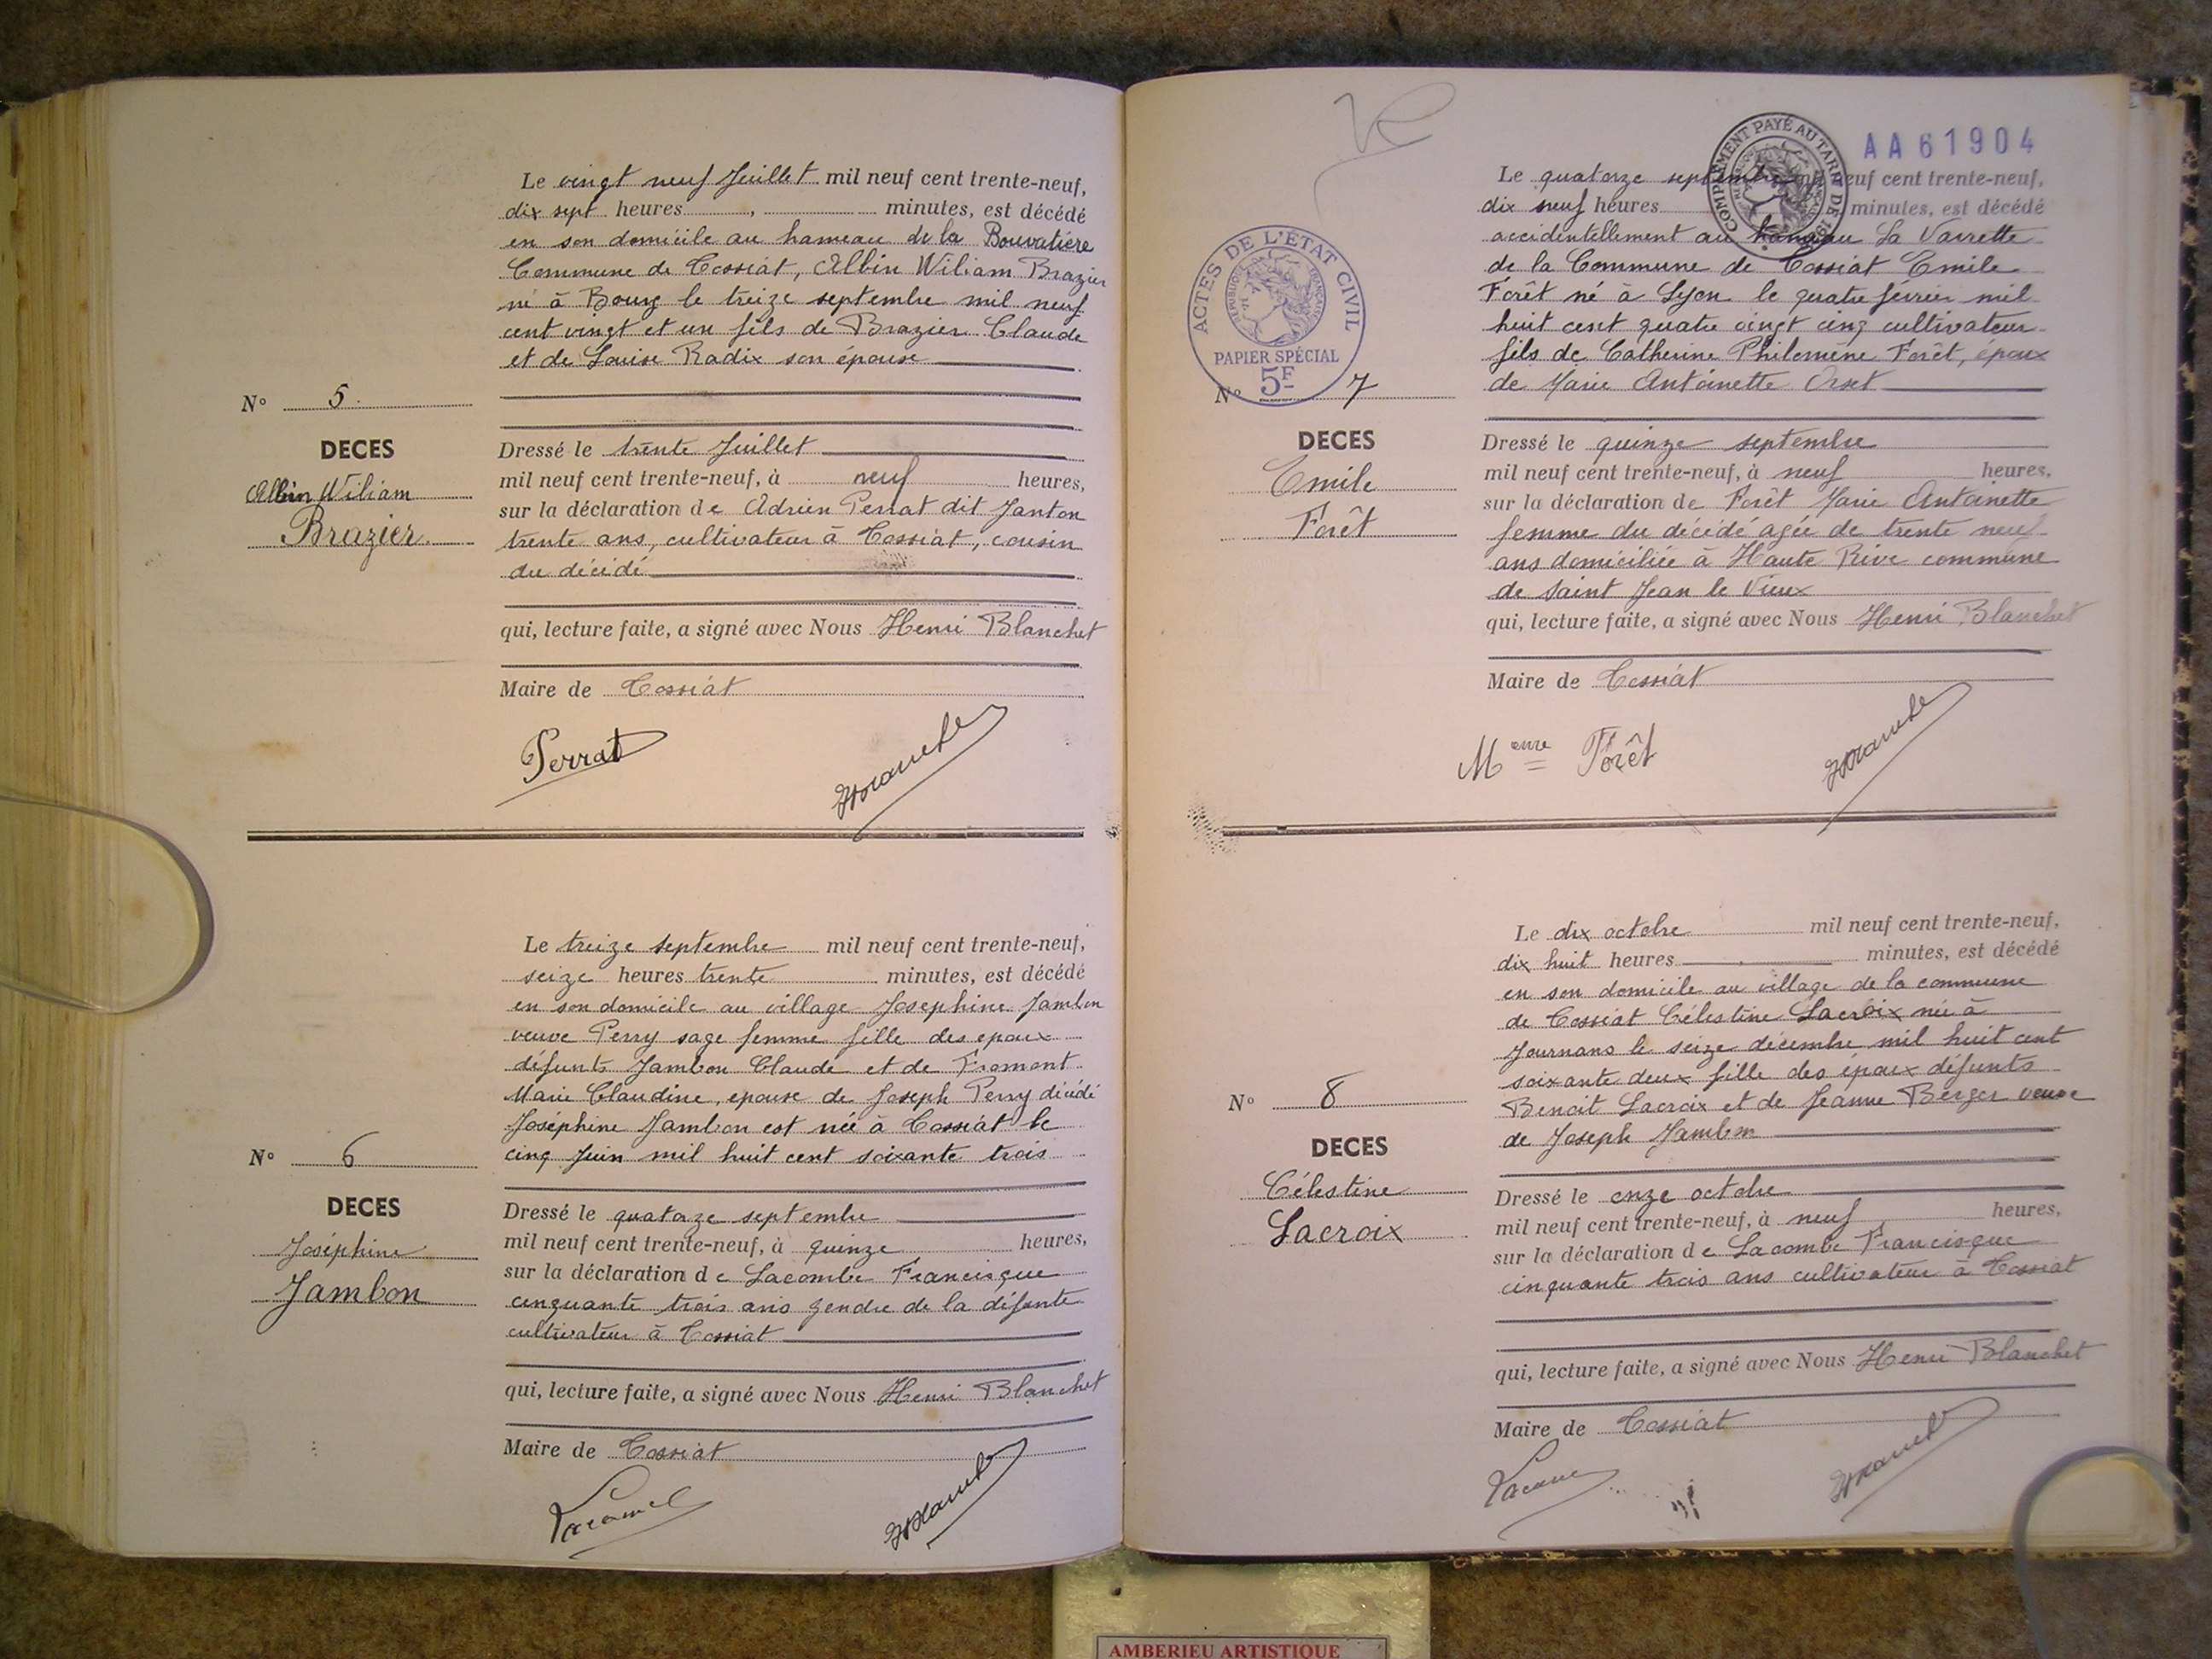 Le vingt neuf Juillet mil neuf cent trente-neuf,
dix sept heures , minutes, est décédé
en son domicile au hameau de la Bouvatière
Commune de Cossiat, Albin Wiliam Brazier
né à Bourg le treize septembre mil neuf
cent vingt et un fils de Brazier Claude
et de Louise Radix son épouse
N° 5.
DECES
Albin Wiliam
Brazier
Dressé le trente Juillet
mil neuf cent trente-neuf, à neuf heures,
sur la déclaration de Adrien Perrat dit Janton
trente ans, cultivateur à Cossiat, cousin
du décédé
qui, lecture faite, a signé avec Nous Henri Blanchet
Maire de Cossiat
Perrat
Le treize septembre mil neuf cent trente-neuf,
seize heures trente minutes, est décédé
en son domicile au village Josephine Jambon
veuve Perry sage femme fille des epoux
défunts Jambon Claude et de Fromont
Marie Claudine, epouse de Joseph Perry décédé
Joséphine Jambon est née à Cossiat le
cinq Juin mil huit cent soixante trois
N° 6
DECES
Joséphine
Jambon
Dressé le quatorze septembre
mil neuf cent trente-neuf, à quinze heures,
sur la déclaration de Lacombe Francisque
cinquante trois ans gendre de la défunte
cultivateur à Cossiat
qui, lecture faite, a signé avec Nous Henri Blanchet
Maire de Cossiat
COMPLEMENT PAYÉ AU TARIF DE
AA61904
Le quatorze septembre neuf cent trente-neuf,
dix neuf heures minutes, est décédé
accidentellement au hameau La Varrette
de la Commune de Cossiat Emile
Forêt né à Lyon le quatre février mil
huit cent quatre vingt cinq cultivateur
fils de Catherine Philomène Forêt, époux
de Marie Antoinette Orset
ACTES DE L'ÉTAT CIVIL
RÉPUBLIQUE FRANÇAISE
PAPIER SPÉCIAL
5F
N° 7
DECES
Emile
Forêt
Dressé le quinze septembre
mil neuf cent trente-neuf, à neuf heures,
sur la déclaration de Forêt Marie Antoinette
femme du décédé agée de trente neuf
ans domiciliée à Haute Rive commune
de Saint Jean le Vieux
qui, lecture faite, a signé avec Nous Henri Blanchet
Maire de Cossiat
Forêt
Le dix octobre mil neuf cent trente-neuf,
dix huit heures minutes, est décédé
en son domicile au village de la commune
de Cossiat Célestine Lacroix née à
Journans le seize décembre mil huit cent
soixante deux fille des époux défunts
Benoit Lacroix et de Jeanne Berger veuve
de Joseph Jambon
N° 8
DECES
Célestine
Lacroix
Dressé le onze octobre
mil neuf cent trente-neuf, à neuf heures,
sur la déclaration de Lacombe Francisque
cinquante trois ans cultivateur à Cossiat
qui, lecture faite, a signé avec Nous Henri Blanchet
Maire de Cossiat
AMBERIEU ARTISTIQUE